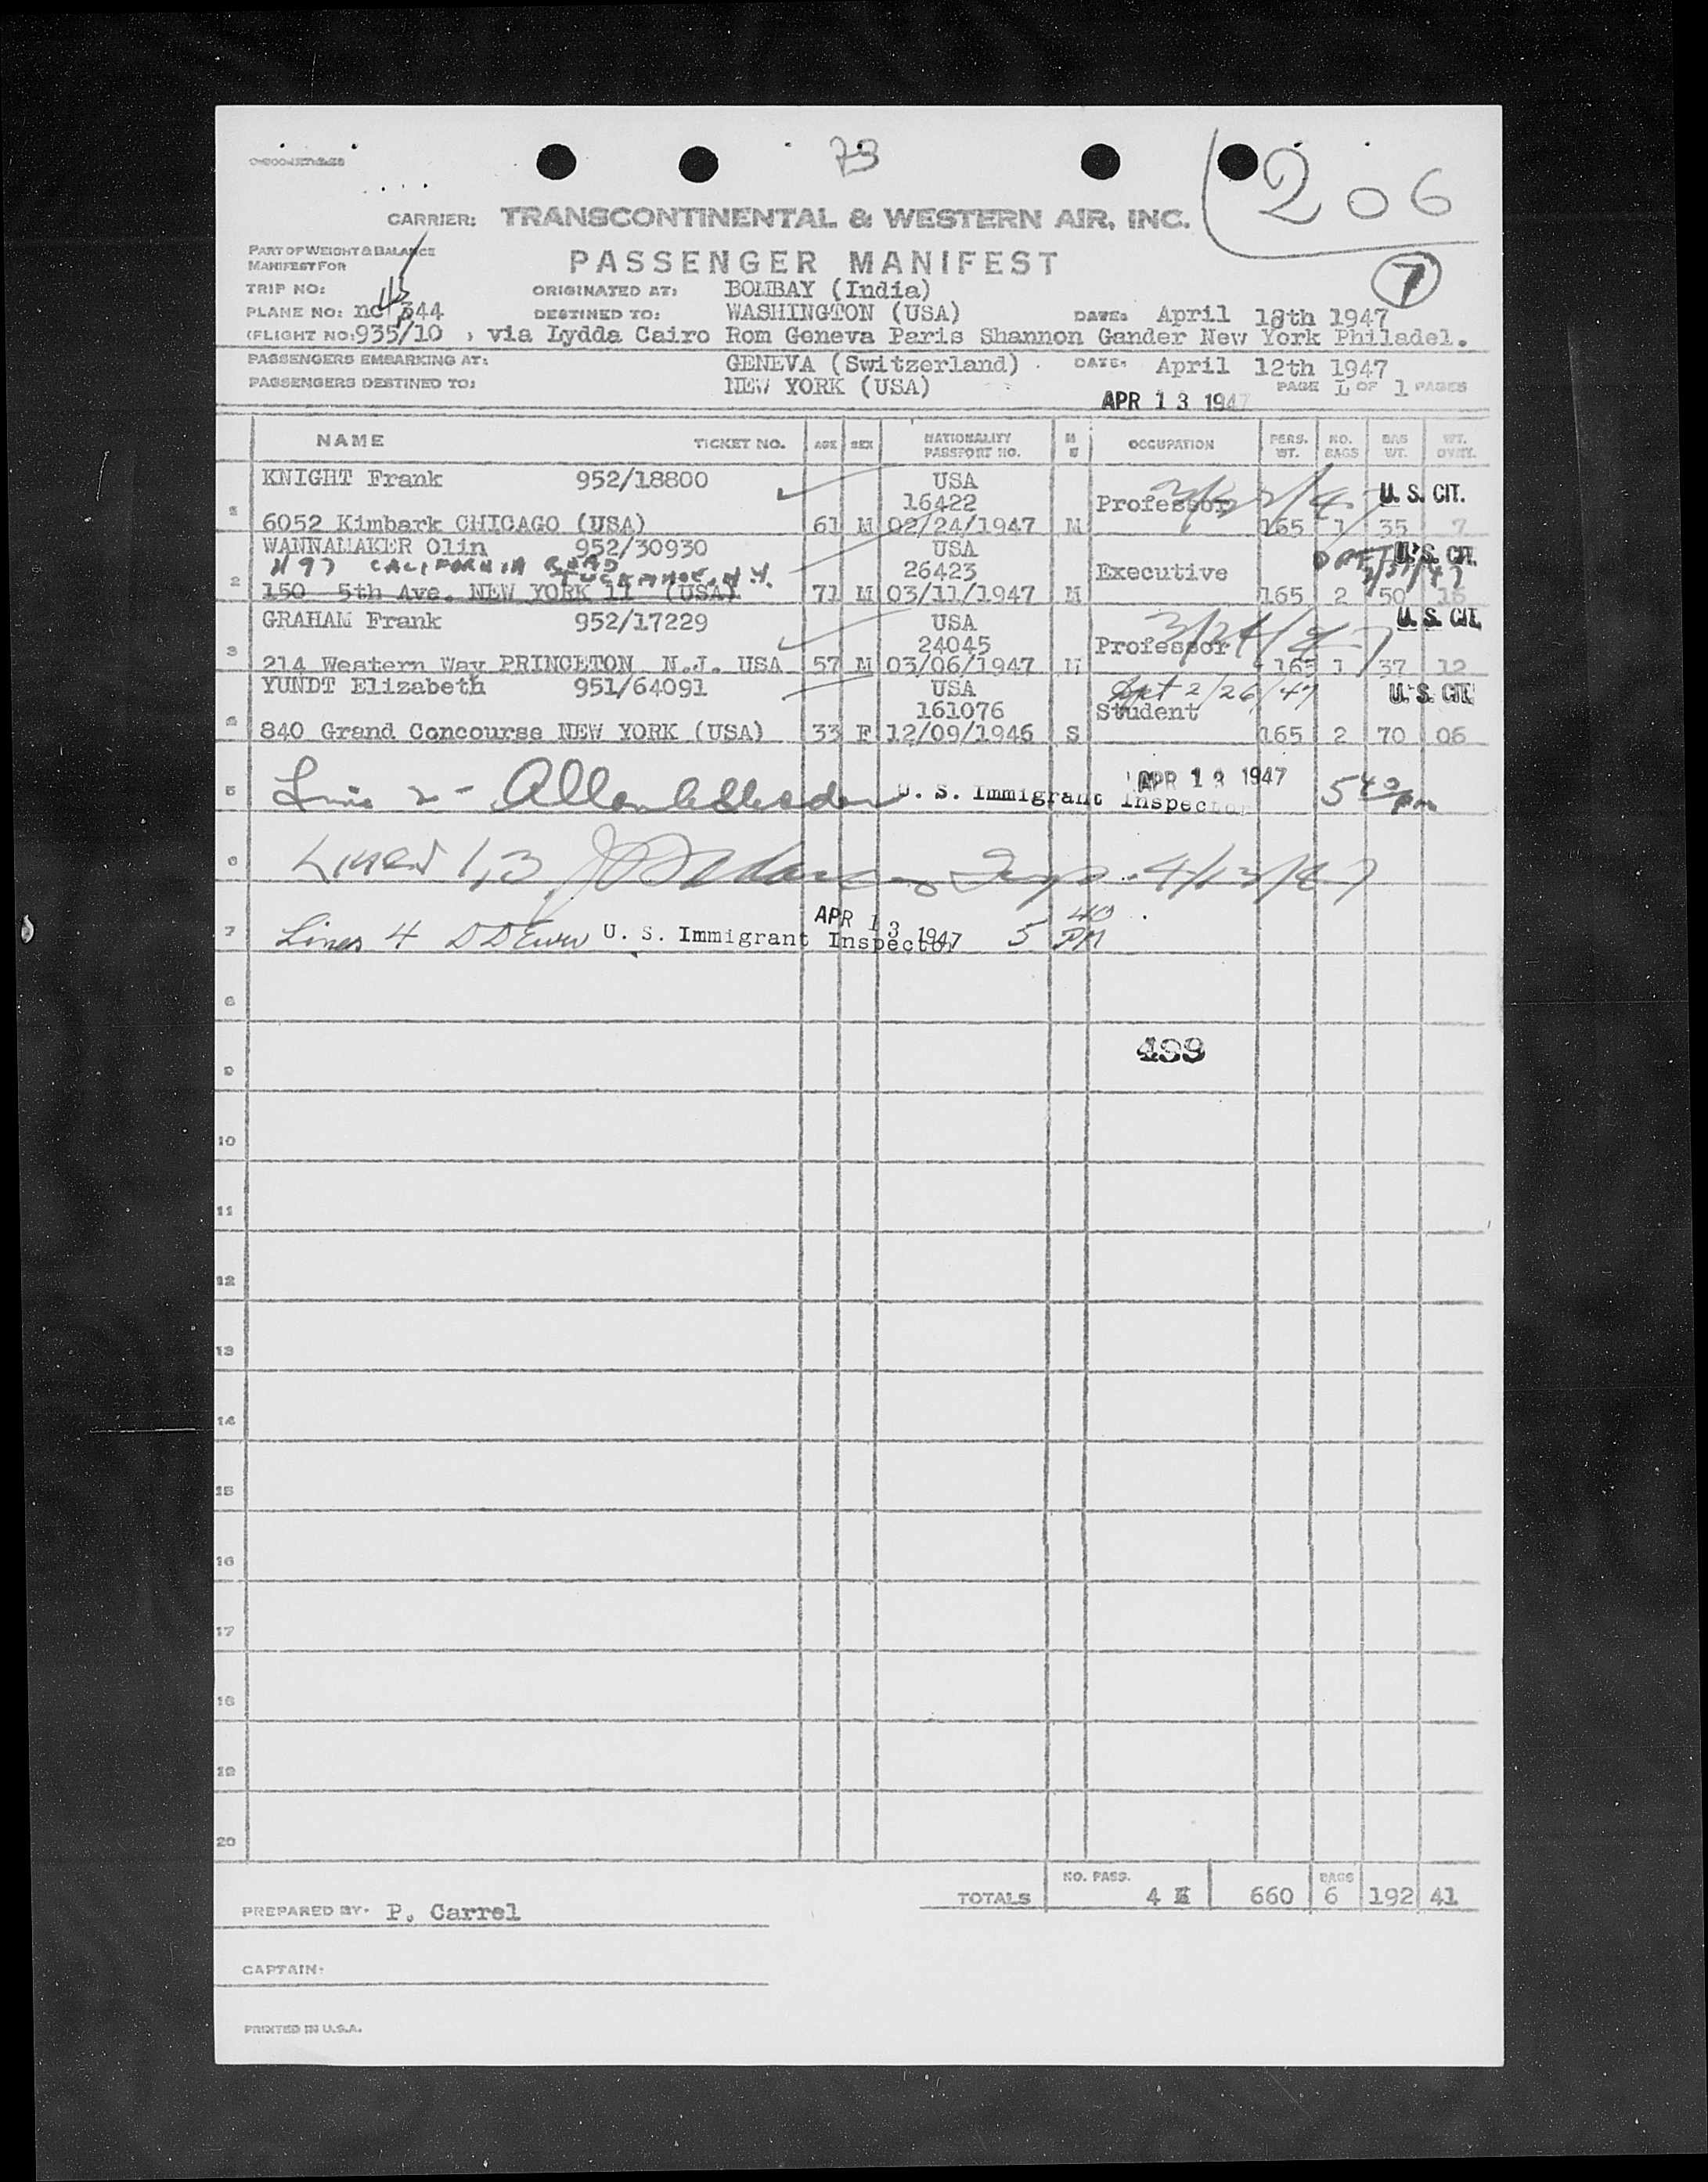 73
206
CARRIER: TRANSCONTINENTAL & WESTERN AIR, INC.
PART OF WEIGHT & BALANCE
MANIFEST FOR
PASSENGER MANIFEST
7
TRIP NO:
ORIGINATED AT: BOMBAY (India)
PLANE NO: nc 344
DESTINED TO: WASHINGTON (USA) DATE: April 18th 1947
(FLIGHT NO: 935/10 , via Lydda Cairo Rom Geneva Paris Shannon Gander New York Philadel.
PASSENGERS EMBARKING AT: GENEVA (Switzerland) . DATE: April 12th 1947
PASSENGERS DESTINED TO: NEW YORK (USA) PAGE 1 OF 1 PAGES
APR 13 1947
NAME TICKET NO. AGE SEX NATIONALITY PASSPORT NO. M OCCUPATION PERS. WT. NO. BAGS BAG WT. WT. OVWT.
KNIGHT Frank 952/18800 USA U. S. CIT.
16422 Professor
1 6052 Kimbark CHICAGO (USA) 61 M 02/24/1947 M 165 1 35 7
WANNAMAKER Olin 952/30930 USA U. S. CIT.
CALIFORNIA ROAD
TUCKAHOE, N.Y. 26423 Executive
2 150 5th Ave. NEW YORK 11 (USA) 71 M 03/11/1947 M 165 2 50 16
GRAHAM Frank 952/17229 USA U. S. CIT.
24045 Professor
3 214 Western Way PRINCETON N.J. USA 57 M 03/06/1947 M 165 1 37 12
YUNDT Elizabeth 951/64091 USA 2/26/47 U. S. CIT.
161076 Student
4 840 Grand Concourse NEW YORK (USA) 33 F 12/09/1946 S 165 2 70 06
5 Line 2 - U. S. Immigrant Inspector APR 13 1947 5 40 pm
6 Lines 1,3 Insp. 4/13/47
7 Lines 4 U. S. Immigrant Inspector APR 13 1947 5 40 PM
8
499
9
10
11
12
13
14
15
16
17
18
19
20
NO. PASS. BAGS
TOTALS 4 660 6 192 41
PREPARED BY: P. Carrel
CAPTAIN:
PRINTED IN U.S.A.